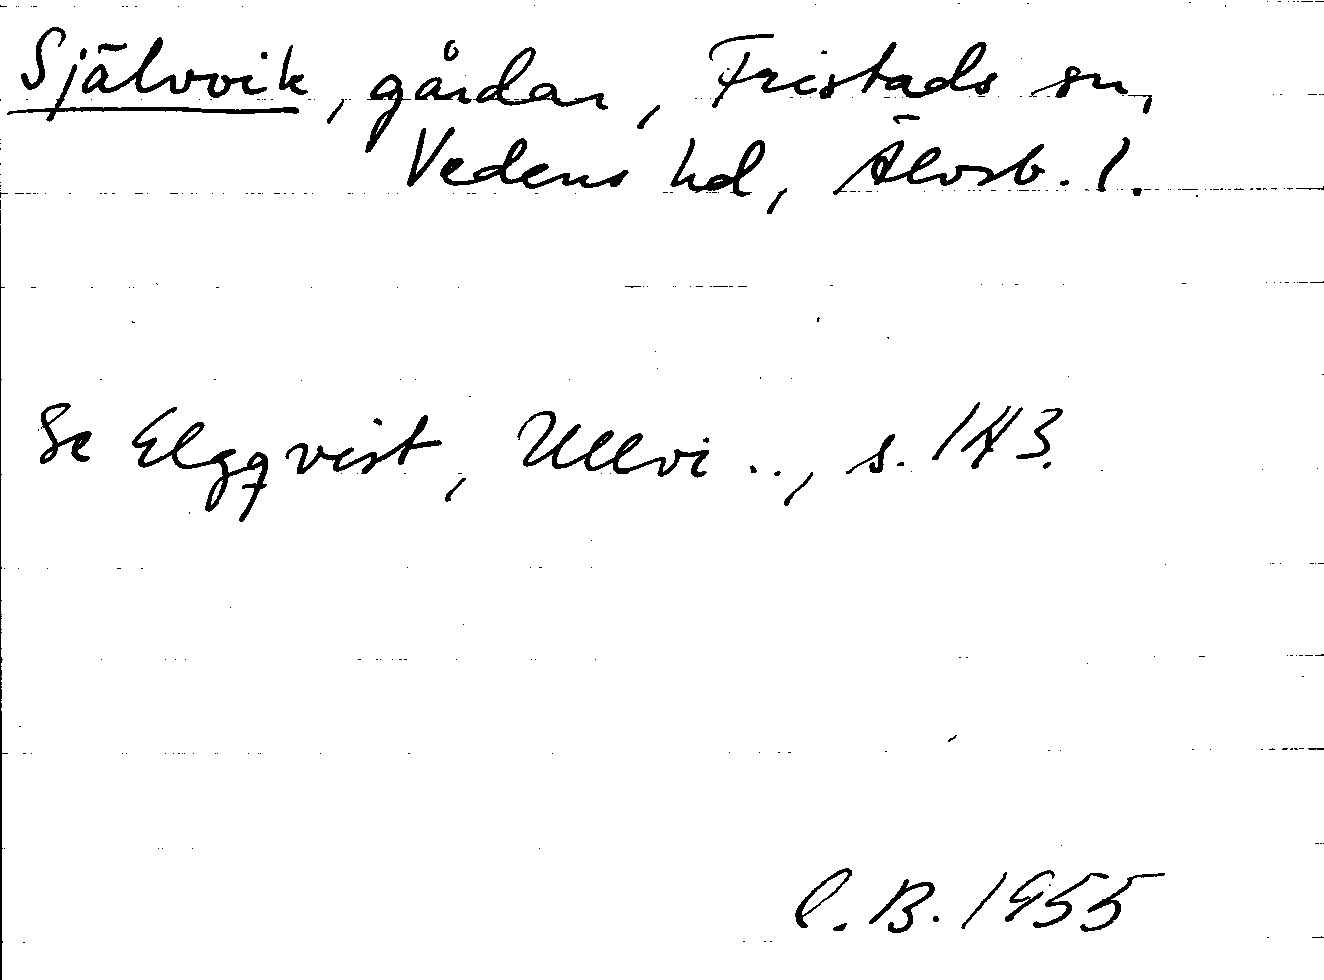 Självvik, gårdar, Fristads sn,
Vedens hd, Älvsb. l.
Se Elgqvist, Ullvi .., s. 143.
C. B. 1955